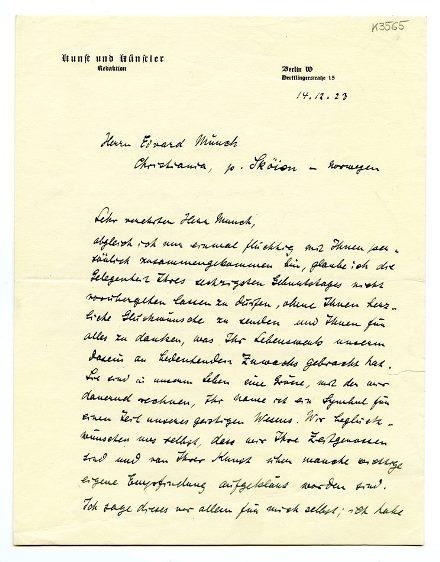 K3565
Kunst und Künstler
Redaktion
Berlin W
Derfflingerstraße 15
14.12.23
Herrn Edvard Munch
Christiania, p. Sköien – Norwegen
Sehr verehrter Herr Munch,
obgleich ich nur einmal flüchtig mit Ihnen per-
sönlich zusammengekommen bin, glaube ich die
Gelegenheit Ihres sechzigsten Geburtstages nicht
vorübergehen lassen zu dürfen, ohne Ihnen herz-
liche Glückwünsche zu senden und Ihnen für
alles zu danken, was Ihr Lebenswerk unserm
Dasein an bedeutendem Zuwachs gebracht hat.
Sie sind in unserm Leben eine Grösse, mit der wir
dauernd rechnen, Ihr Name ist ein Symbol für
einen Teil unseres geistigen Wesens. Wir beglück-
wünschen uns selbst, dass wir Ihre Zeitgenossen
sind und von Ihrer Kunst über manche wichtige
eigene Empfindung aufgeklärt worden sind.
Ich sage dieses vor allem für mich selbst; ich habe